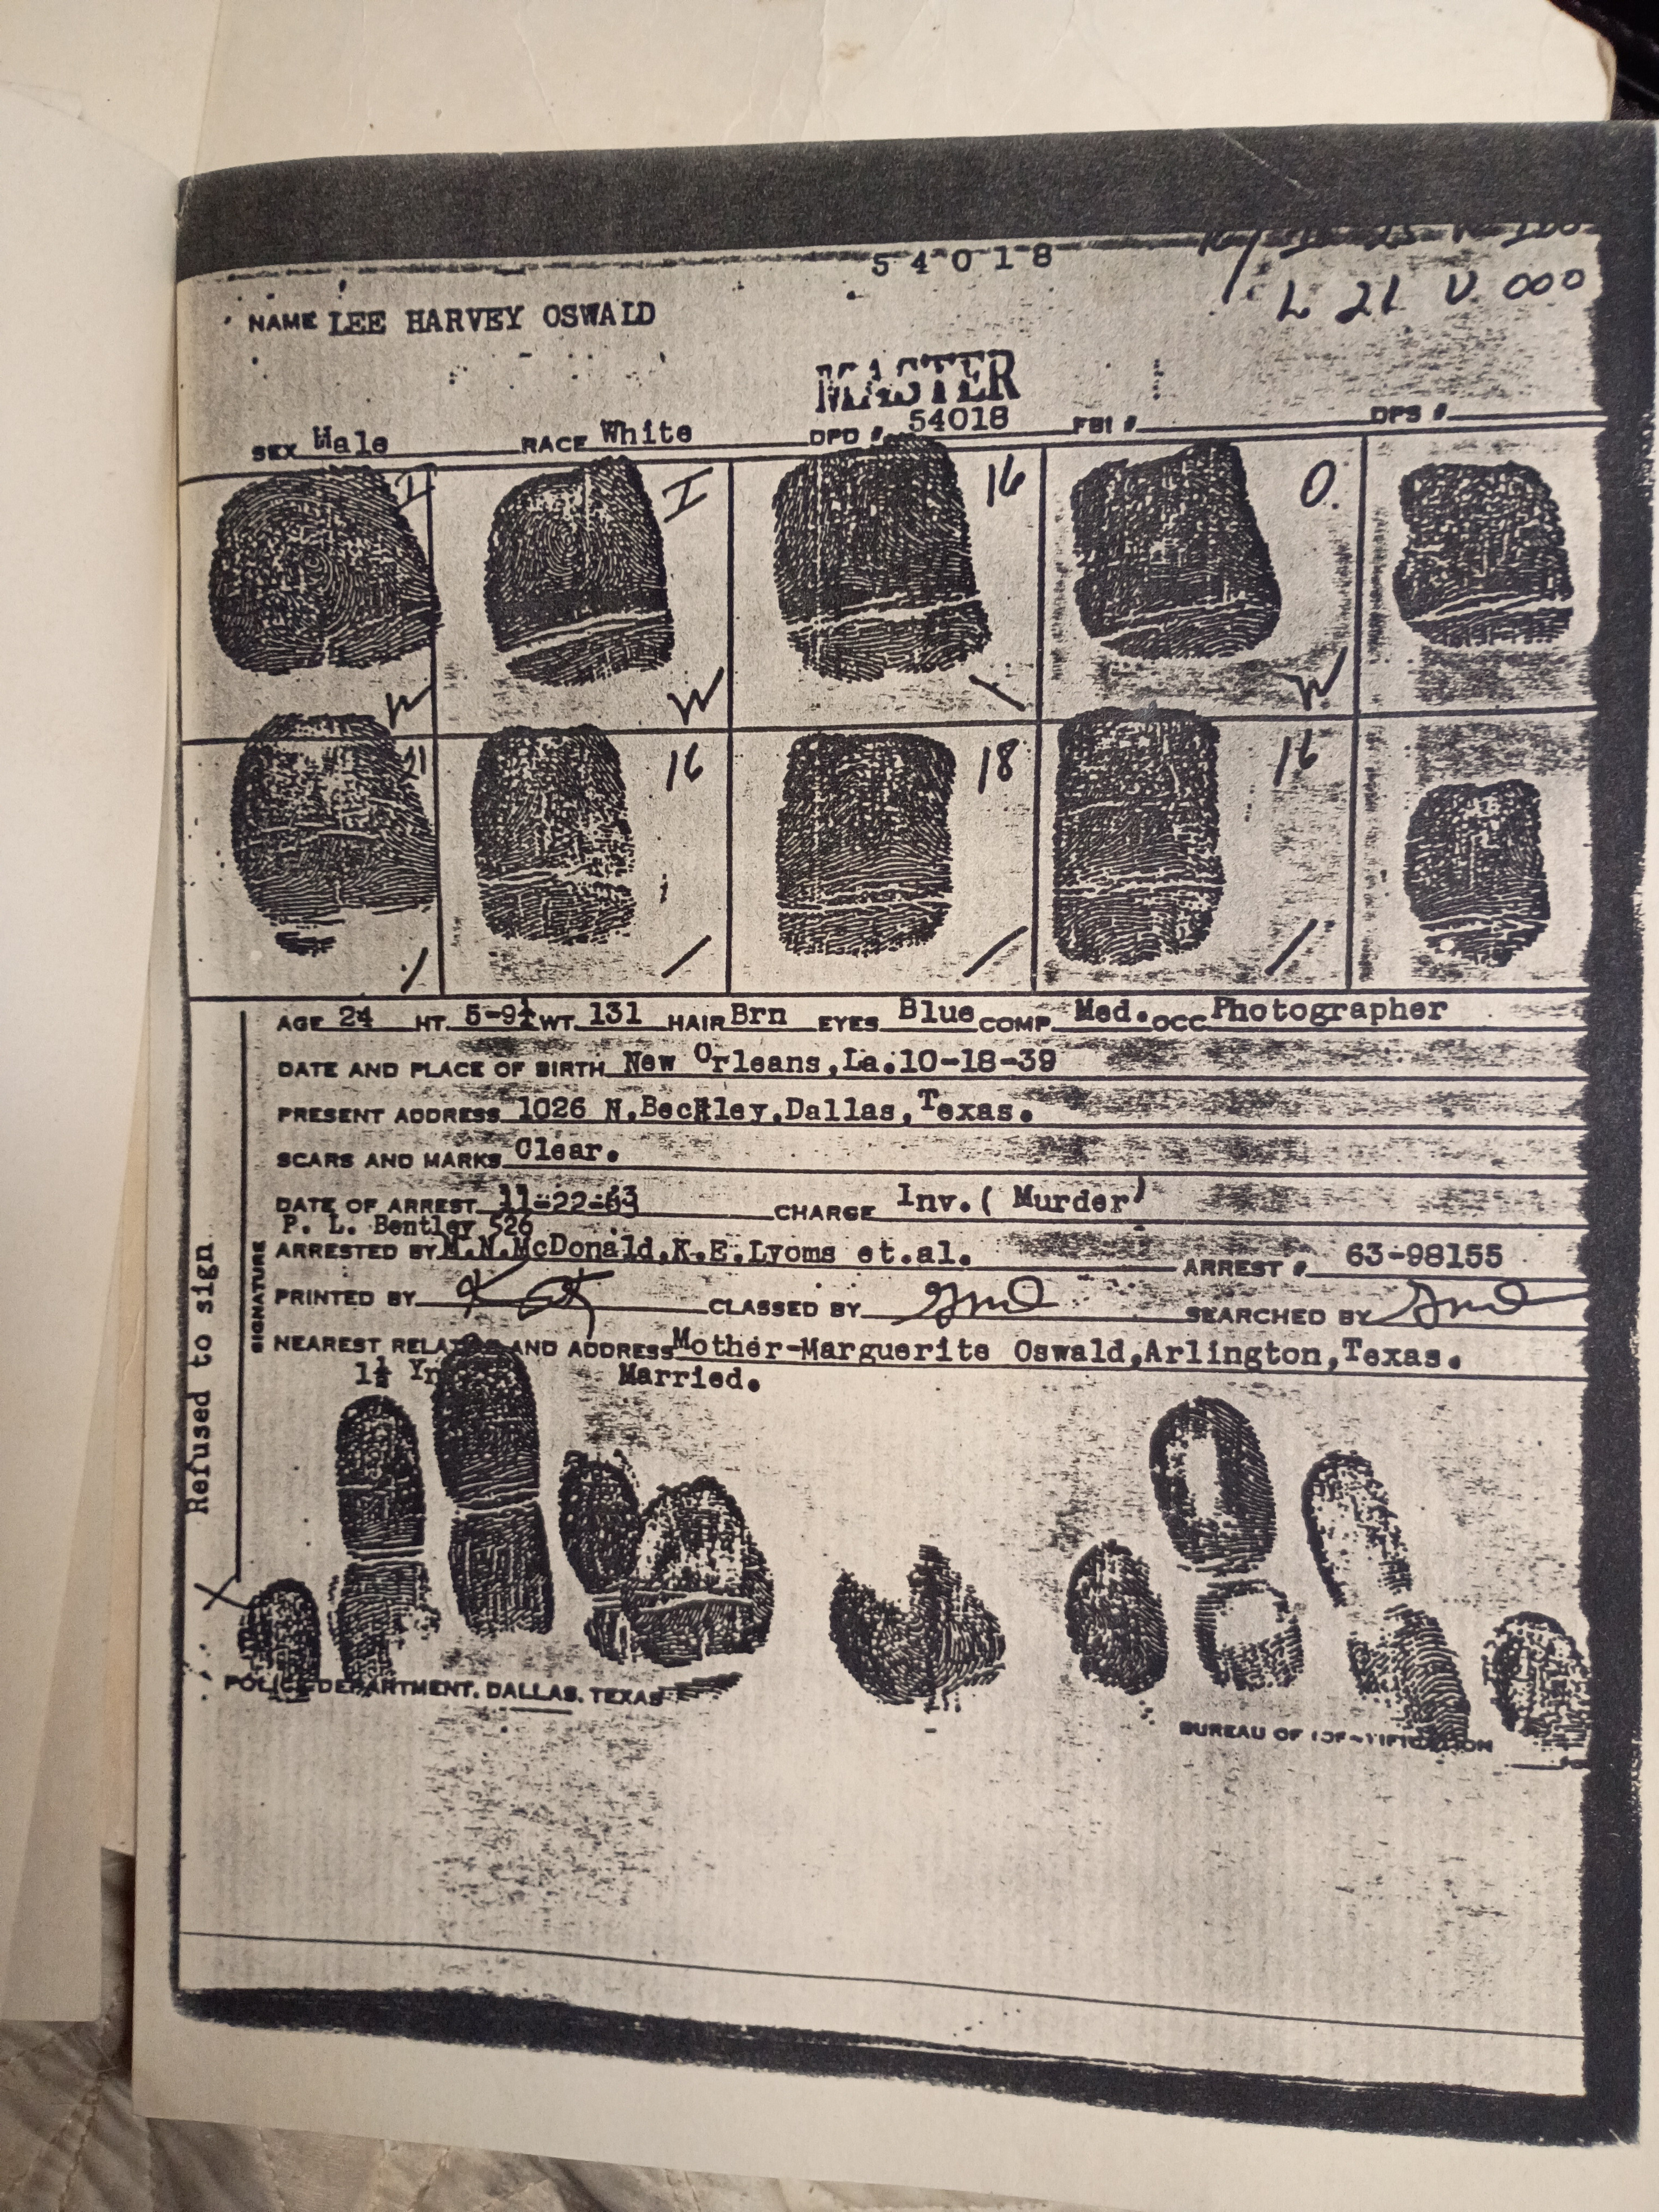 54018
L 21 U 000
NAME LEE HARVEY OSWALD
MASTER
SEX Male RACE White DPD # 54018 FBI # DPS #
I I 16 O.
W W \ W
21 16 18 16
/ / / /
AGE 24 HT. 5-9½ WT. 131 HAIR Brn EYES Blue COMP. Med. OCC Photographer
DATE AND PLACE OF BIRTH New Orleans,La.10-18-39
PRESENT ADDRESS 1026 N.Beckley,Dallas,Texas.
SCARS AND MARKS Clear.
DATE OF ARREST 11-22-63 CHARGE Inv.( Murder)
P. L. Bentley 526
ARRESTED BY M.N.McDonald,K.E.Lyoms et.al. ARREST # 63-98155
PRINTED BY CLASSED BY SEARCHED BY
NEAREST RELATIVE AND ADDRESS Mother-Marguerite Oswald,Arlington,Texas.
1½ Yr Married.
SIGNATURE
Refused to sign
X
POLICE DEPARTMENT, DALLAS, TEXAS
BUREAU OF IDENTIFICATION